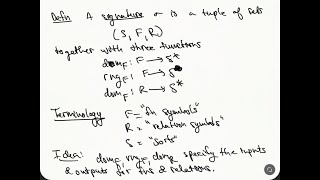 Defn: A signature σ is a tuple of sets
(S, F, R)
together with three functions
dom_F: F → S*
rng_F: F → S
dom_F: R → S*
Terminology F = "fn symbols"
R = "relation symbols"
S = "sorts"
Idea: dom_F, rng_F, dom_R specify the inputs
& outputs for fns & relations.